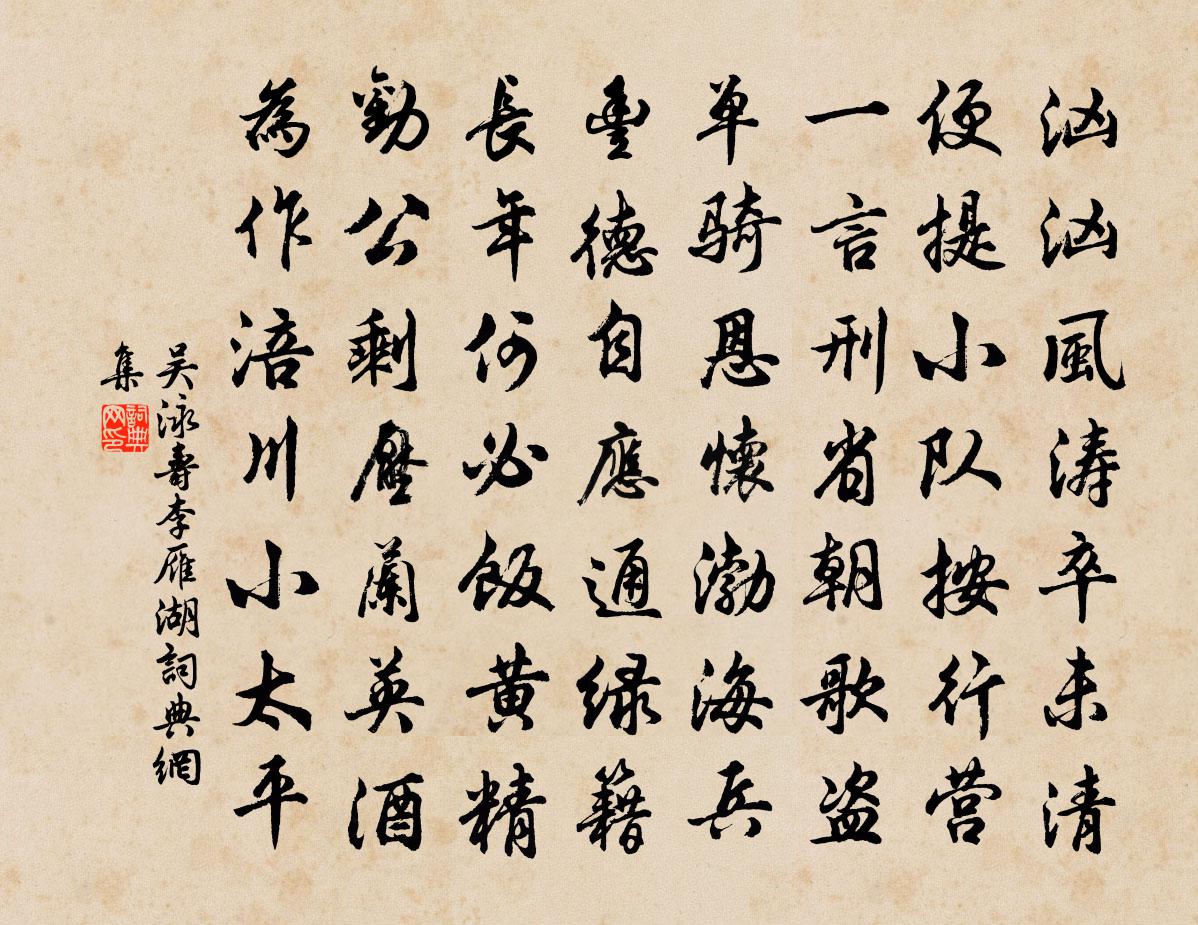 汹汹風涛卒未清
便提小队按行营
一言刑省朝歌盗
单骑恩懷渤海兵
豊德自應通绿籍
長年何必饭黄精
勸公剩壓蘭英酒
為作涪川小太平
吴泳壽李雁湖詞典網
集
詞典
网印